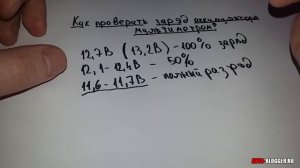 Как проверить заряд аккумулятора
мультиметром?
12,7В (13,2В) - 100% заряд
12,1 - 12,4В - 50%
11,6 - 11,7В - полный разряд
AVTO-BLOGGER.RU